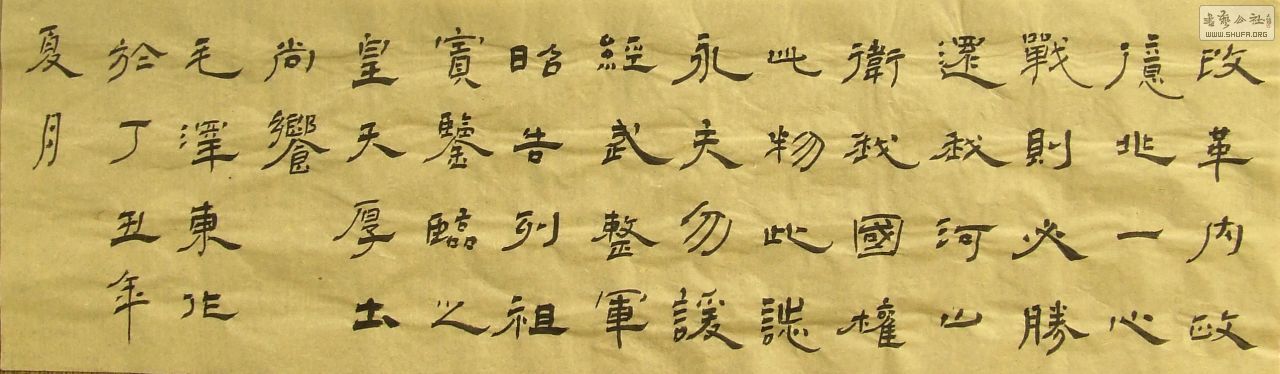 改革内政
億兆一心
戰則必勝
還我河山
衛我國權
此物此誌
永矢勿諼
經武整軍
昭告列祖
實鑒臨之
皇天厚土
尚饗
毛澤東作
於丁丑年
夏月
書藝公社
WWW.SHUFA.ORG